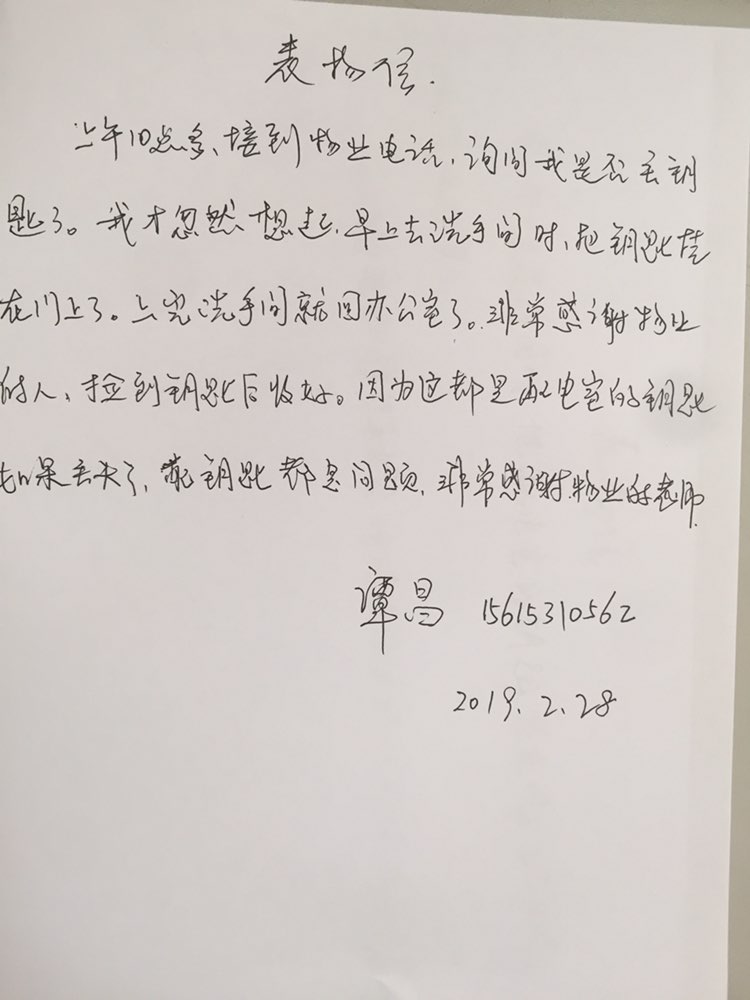 表扬信.
上午10点多、接到物业电话,询问我是否丢钥
匙了。我才忽然想起,早上去洗手间时,把钥匙挂
在门上了。上完洗手间就回办公室了。非常感谢物业
的人、捡到钥匙后收好。因为这都是配电室的钥匙
如果丢失了,配钥匙都是问题,非常感谢物业的老师
谭昌 15615310562
2019.2.28